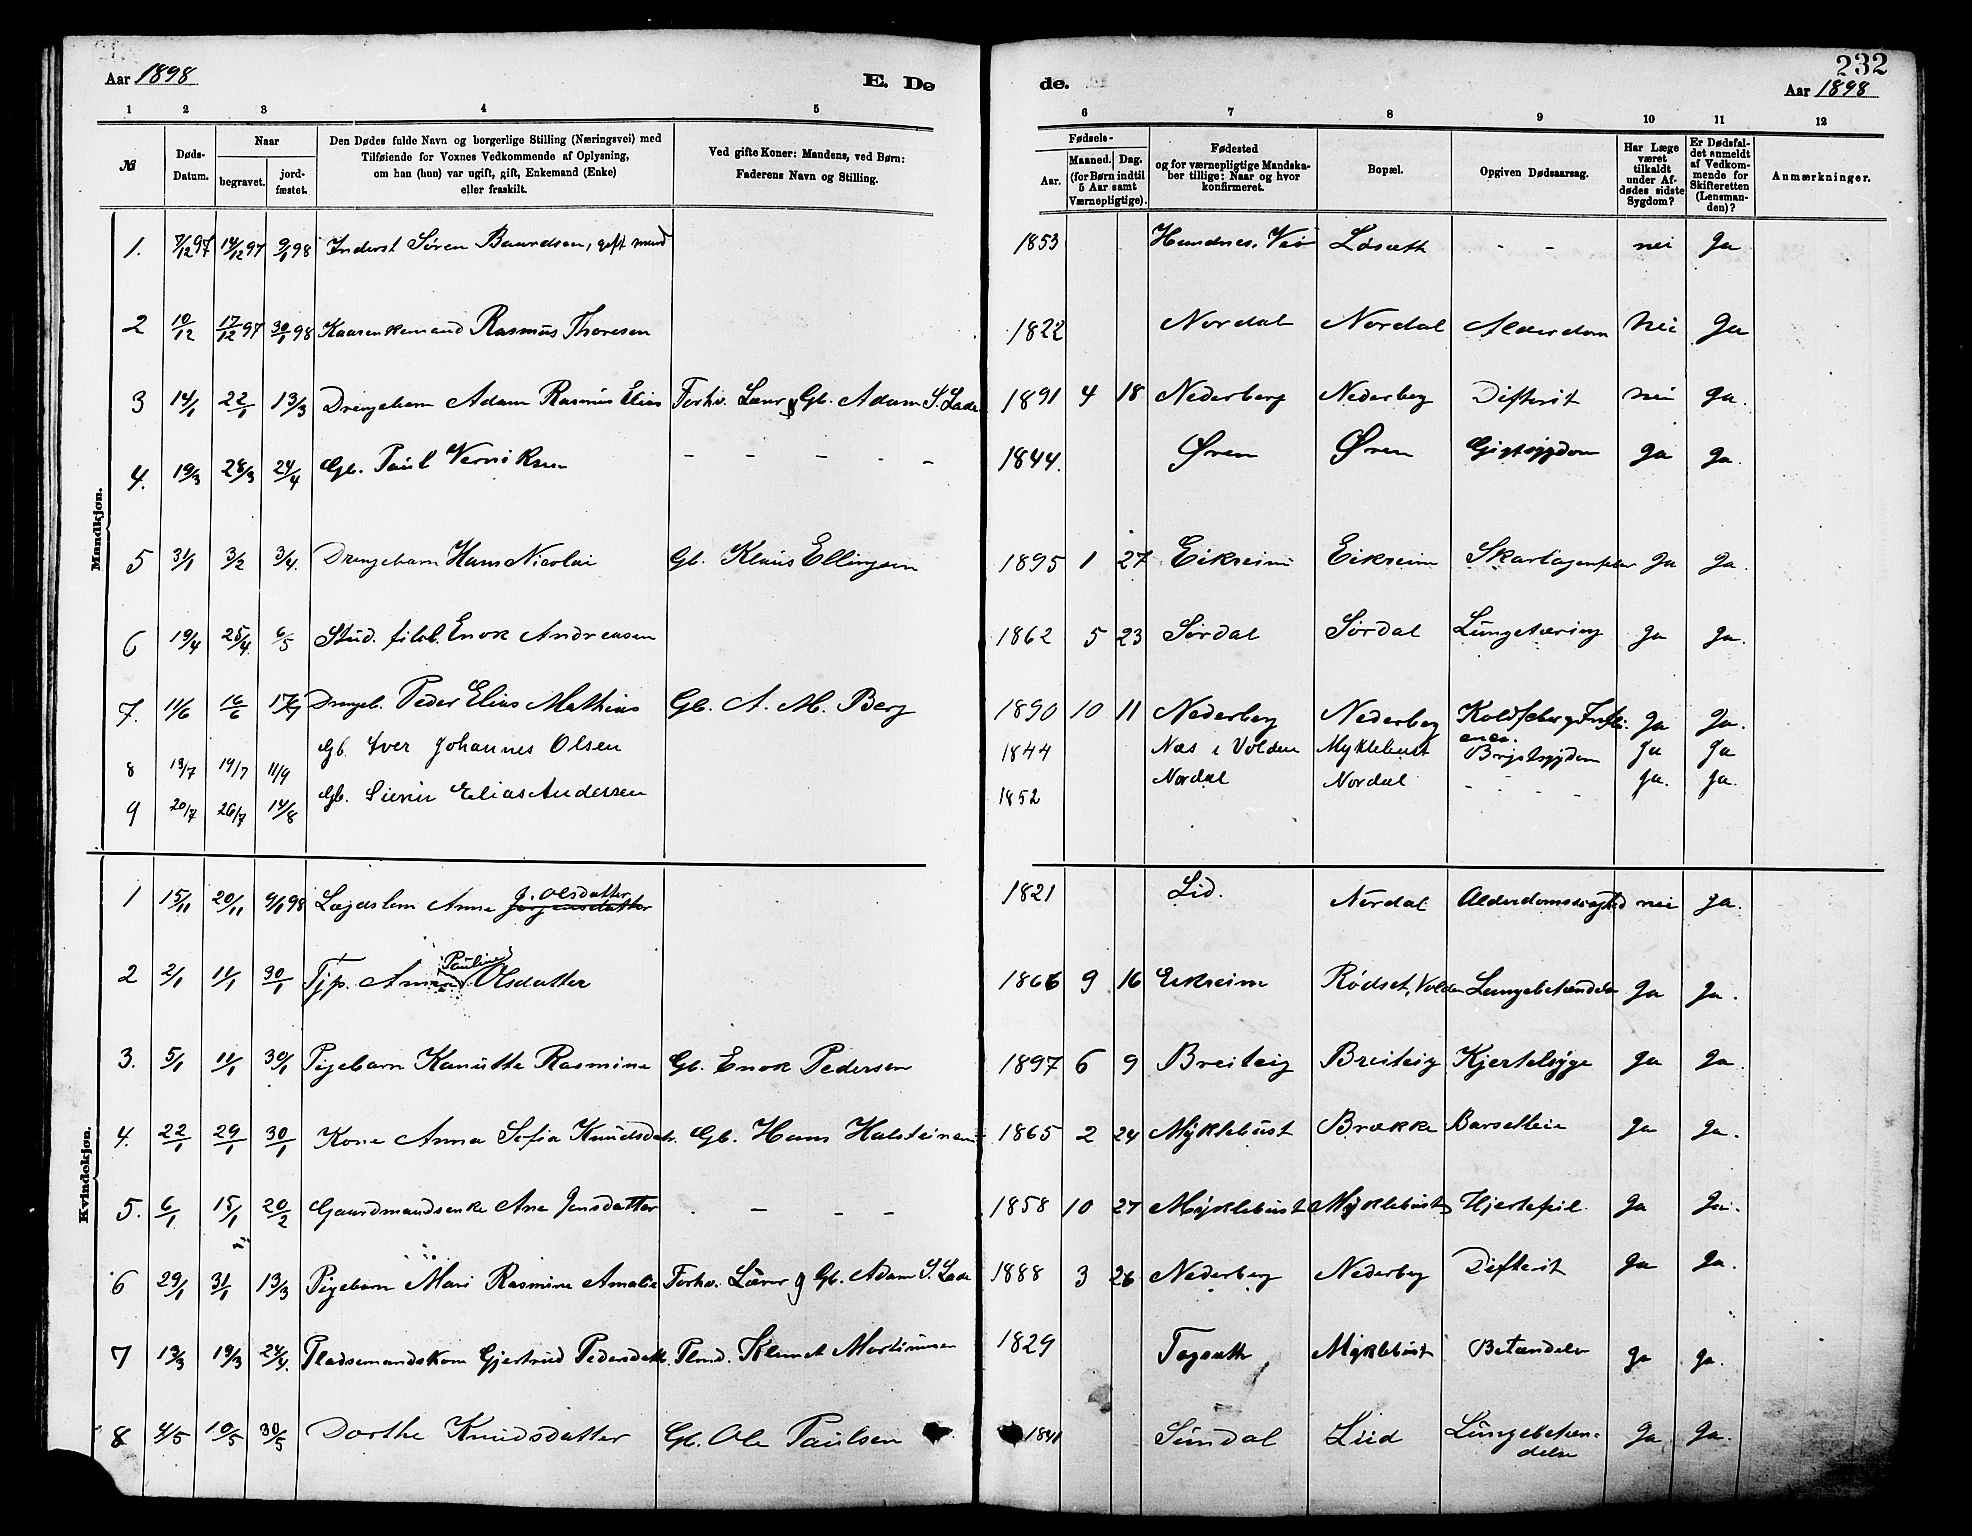 232
Aar 1898 E. Dø de. Aar 1898
1 2 3 4 5 6 7 8 9 10 11 12
№ Døds-Datum. Naar begravet. jord-fæstet. Den Dødes fulde Navn og borgerlige Stilling (Næringsvei) med Tilføiende for Voxnes Vedkommende af Oplysning, om han (hun) var ugift, gift, Enkemand (Enke) eller fraskilt. Ved gifte Koner: Mandens, ved Børn: Faderens Navn og Stilling. Fødsels- Aar. Maaned. Dag. (for Børn indtil 5 Aar samt Værnepligtige). Fødested og for værnepligtige Mandskaber tillige: Naar og hvor konfirmeret. Bopæl. Opgiven Dødsaarsag. Har Læge været tilkaldt under Afdødes sidste Sygdom? Er Dødsfaldet anmeldt af Vedkommende for Skifteretten (Lensmanden)? Anmærkninger.
Mandkjøn.
1. 7/12 97 14/12 97 9/1 98 Inderst Søren Baardsen, gift mand 1853 Hundnes, Veø Løsæth - - nei Ja
2 10/12 17/12 97 30/1 98 Kaarenkemand Rasmus Thoresen 1822 Nordal Nordal Alderdom Nei Ja
3 14/1 22/1 13/3 Drengebarn Adam Rasmus Elias Forhv. Lærer og Gb. Adam S. Lade 1891 4 18 Nederberg Nederberg Difterit nei Ja.
4. 19/3 28/3 24/4 Gb. Paul Verniksen - - - - - 1844. Øren Øren Gigtsygdom Ja Ja.
5 31/1 3/2 3/4. Drengebarn Hans Nicolai Gb. Klaus Ellingsen 1895 1 27 Eikreim Eikreim Skarlagensfeber Ja Ja.
6 19/4 25/4. 6/5 Stud. filol. Enok Andreasen 1862 5 23 Sørdal Sørdal Lungetæring Ja Ja.
7. 11/6 16/6 17/7 Drengeb. Peder Elias Mathias Gb. A. M. Berg 1890 10 11 Nederberg Nederberg Koldfeber og Influenca. Ja Ja.
8 13/7 19/7 11/9 Gb. Iver Johannes Olsen 1844 Næs i Volden Myklebust Brystsygdom Ja Ja
9 20/7 26/7 14/8 Gb. Siver Elias Andersen 1852 Nordal Nordal - - - - Ja. Ja.
Kvindekjøn.
1 15/11 20/11 9/1 98 Lægdslem Anne J. Olsdatter Jørgensdatter 1821 Lid. Nordal Alderdomssvaghed nei Ja.
2 2/1 11/1 30/1 Tjp. Anne Pauline Olsdatter 1866 9 16 Eikreim Rødset, Volden Lungebetændelse Ja Ja.
3. 5/1 11/1 30/1 Pigebarn Kanutte Rasmine Gb. Enok Pedersen 1897 6 9 Breiteig Breiteig Kjertelsyge Ja Ja.
4. 22/1 29/1 30/1 Kone Anna Sofia Knudsdatr. Gb. Hans Halsteinsen 1865 2 24 Myklebust Brække Barselleie Ja Ja.
5. 6/1 15/1 20/2 Gaardmandsenke Ane Jensdatter - - - - 1858 10 27 Myklebust Myklebust Hjertefeil Ja Ja.
6 29/1 31/1 13/3 Pigebarn Mari Rasmine Amalie Forhv. Lærer og Gb. Adam S. Lade 1888 3 26 Nederberg Nederberg Difterit Ja Ja.
7 13/3 19/3 24/4. Pladsemandskone Gjertrud Pedersdatr. Plmd. Klemet Mortinusen 1829 Tagsæth Myklebust Betændelse Ja Ja.
8 4/5 10/5 30/5 Dorthe Knudsdatter Gb. Ole Paulsen 1841 Sundal Liid Lungebetændelse Ja Ja.